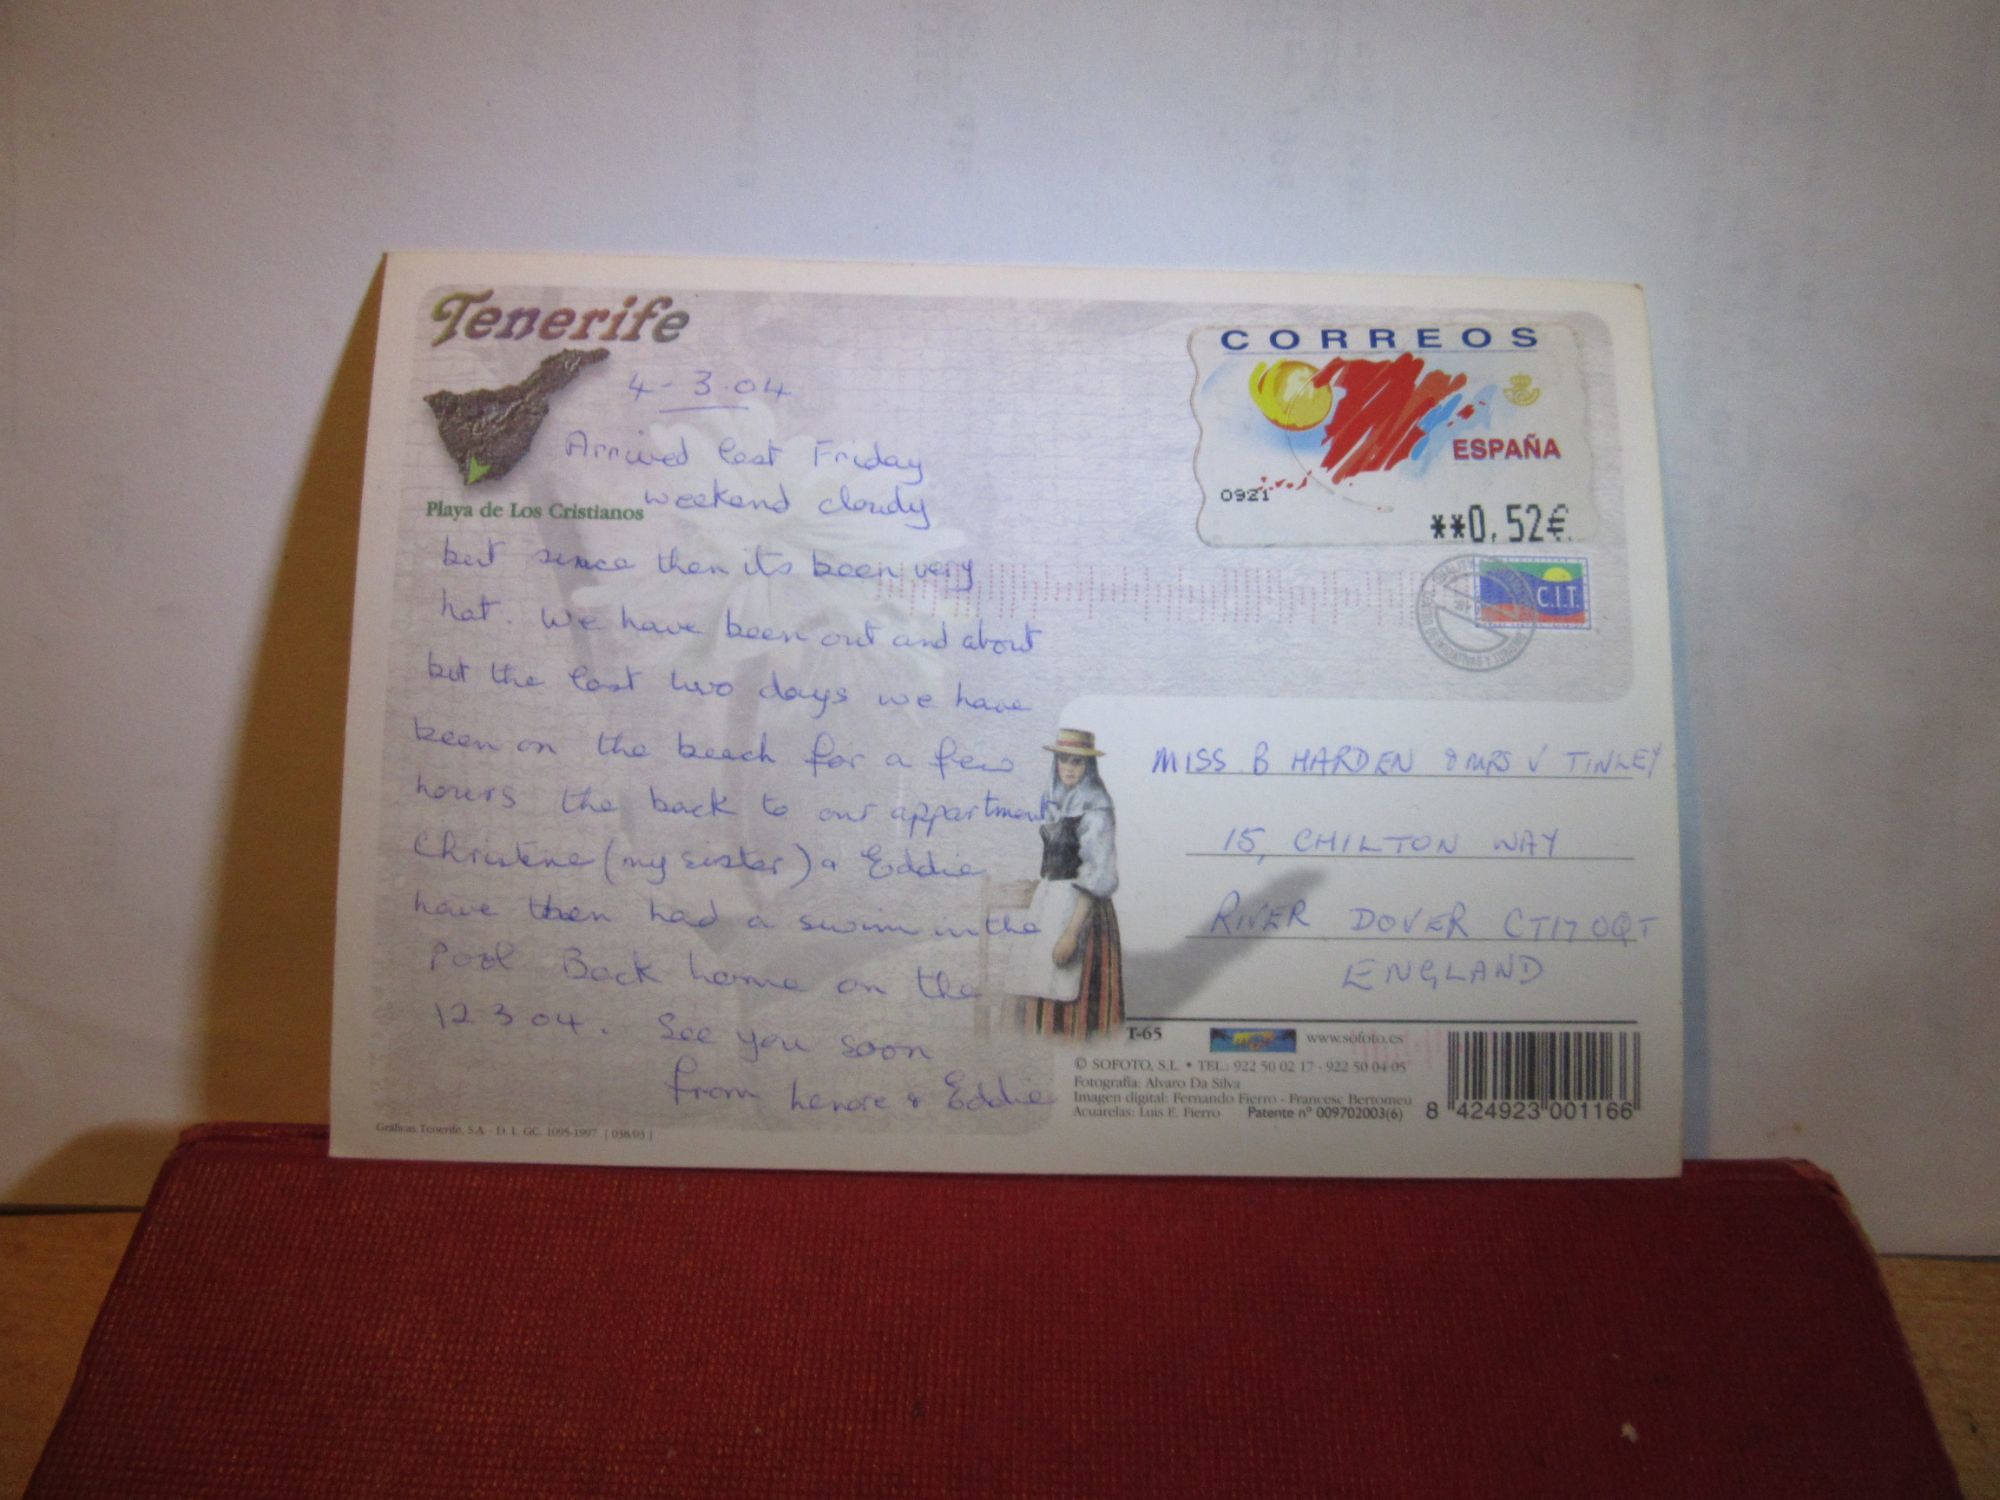 Tenerife
4-3.04
Arrived last Friday
weekend cloudy
Playa de Los Cristianos
but since then its been very
hot. We have been out and about
but the last two days we have
been on the beach for a few
hours the back to our appartment
Christine (my sister) & Eddie
have then had a swim in the
Pool Back home on the
12 3 04. See you soon
from Lenore & Eddie
CORREOS
ESPAÑA
0921
**0,52€
C.I.T.
MISS B HARDEN & MRS V TINLEY
15, CHILTON WAY
RIVER DOVER CT17 0QT
ENGLAND
T-65
www.sofoto.es
© SOFOTO, S.L. • TEL.: 922 50 02 17 - 922 50 04 05
Fotografía: Alvaro Da Silva
Imagen digital: Fernando Fierro - Francesc Bertomeu
Acuarelas: Luis E. Fierro Patente nº 009702003(6)
8 424923 001166
Gráficas Tenerife, S.A - D. L. GC. 1095-1997 [ 038/03 ]